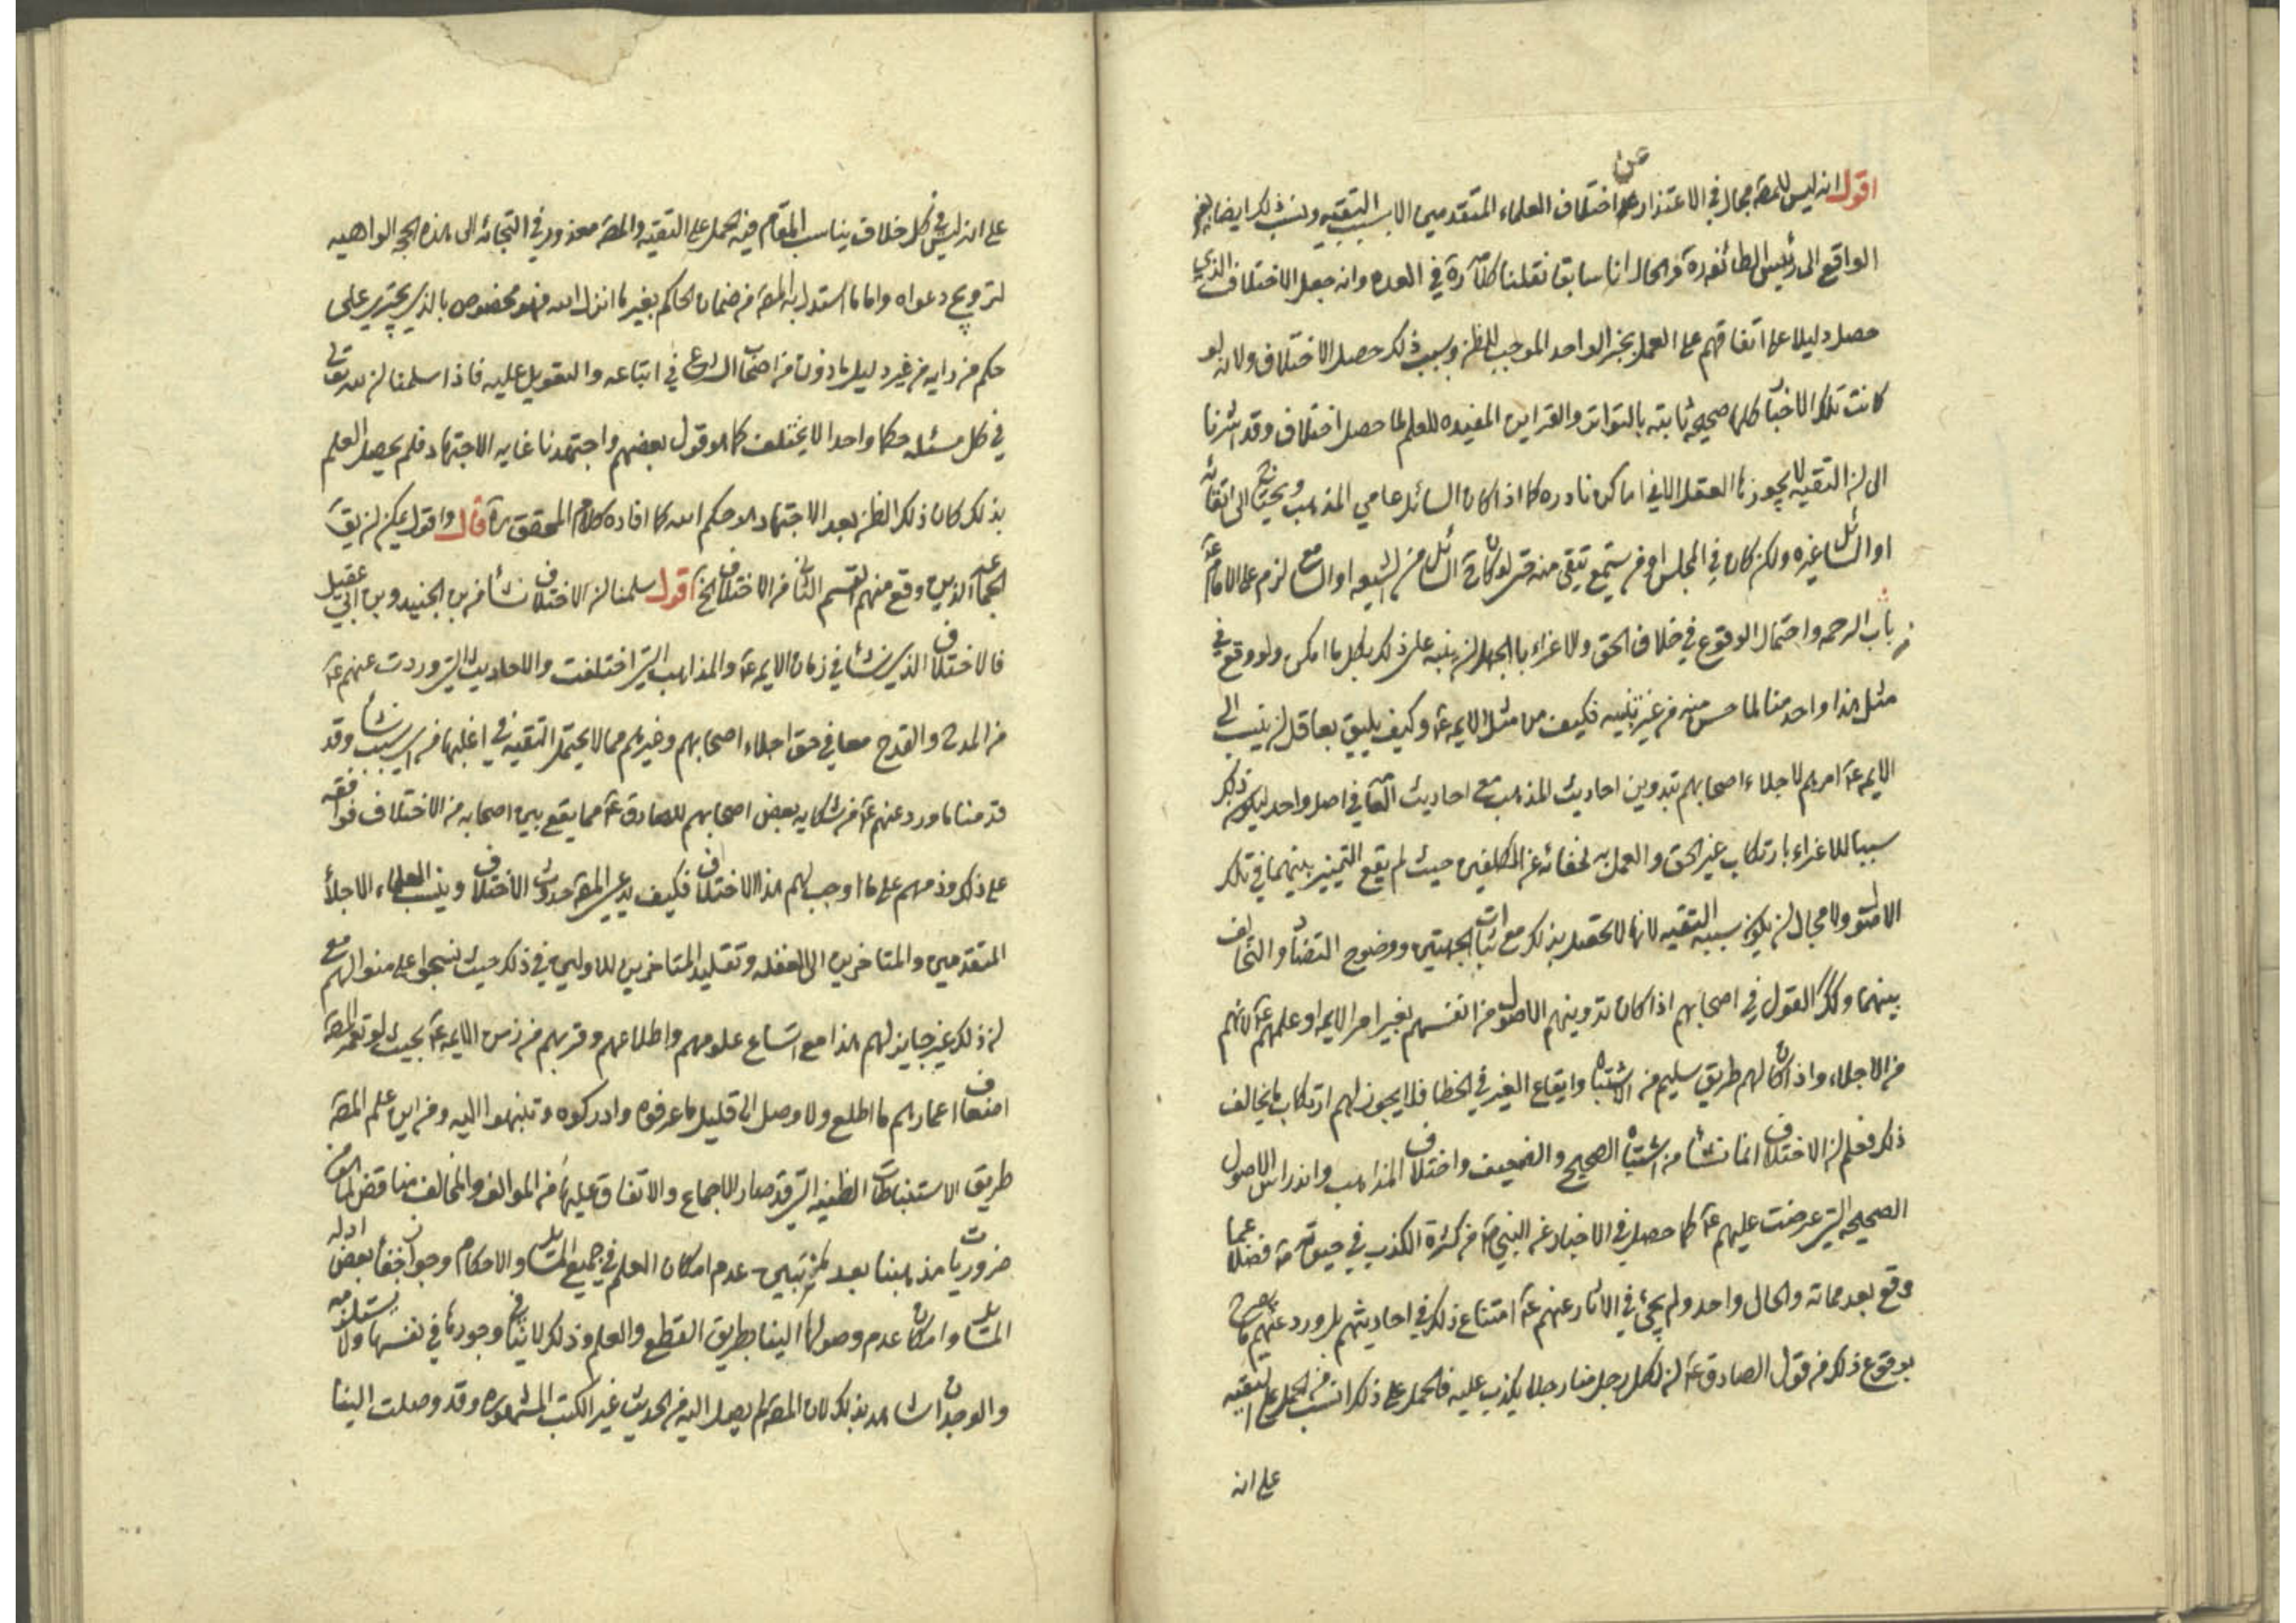 عن
اقول انه ليس للمصه مجال في الاعتذار عن اختلاف العلماء المتقدمين الا بسبب التقيه ونسب ذلك ايضا
الواقع الى رئيس الطائفه ره والحال انا سابقا نقلنا كلامه ره في العده وانه جعل الاختلاف الذي
حصل دليلا على اتفاقهم على العمل بخبر الواحد الموجب للظن وبسبب ذلك حصل الاختلاف ولانه لو
كانت تلك الاخبار كلها صحيحه ثابته بالتواتر والقراين المفيده للعلم لما حصل اختلاف وقد اشرنا
الى ان التقيه لا يجوزها العقل الا في اماكن نادره كما اذا كان السائل عامي المذهب ويحتاج الى اتقائه
او السائل غيره ولكن كان في المجلس او من يستمع تتقى منه حتى لو كان السائل من الشيعه او السامع لزم على الامام ع
من باب الرحمه واحتمال الوقوع في خلاف الحق والاغراء بالجهل ان ينبه على ذلك بكل ما امكن ولو وقع في
مثل هذا واحد منا لما حسن منه من غير تنبيه فكيف من مثل الايمه ع وكيف يليق بعاقل ان ينسب الى
الايمه ع امرهم لاجلاء اصحابهم بتدوين احاديث المذهب مع احاديث التقيه في اصل واحد ليكون ذلك
سببا للاغراء بارتكاب غير الحق والعمل به لخفائه عن المكلفين حيث لم يقع التمييز بينهما في تلك
الاصول ولا مجال ان يكون سببه التقيه لانها لا تحصل بذلك مع اثبات الجهتين ووضوح التضاد والتخالف
بينهما وكذلك القول في اصحابهم اذا كان تدوينهم الاصول من انفسهم بغير امر الايمه او علمهم ع لانهم
من الاجلاء واذا كان لهم طريق سليم من الاشتباه وايقاع الغير في الخطا فلا يجوز لهم ارتكاب ما يخالف
ذلك فعلم ان الاختلاف انما نشأ من اشتباه الصحيح والضعيف واختلاف المذاهب واندراس الاصول
الصحيحه التي عرضت عليهم ع كما حصل في الاخبار عن النبي ص من كثرة الكذب في حيوته ص فضلا عما
وقع بعد مماته والحال واحد ولم يجئ في الاثار عنهم ع امتناع ذلك في احاديثهم بل ورد عنهم ما يصرح
بوقوع ذلك من قول الصادق ع ان لكل رجل منا رجلا يكذب عليه فالحمل على ذلك انسب من الحمل على التقيه
على انه
على انه ليس في كل خلاف يناسب المقام فيه الحمل على التقيه والمصه معذور في التجائه الى هذه الحجج الواهيه
لترويج دعواه واما ما استدل به المصه من ضمان الحاكم بغير ما انزل الله فهو مخصوص بالذي يجتري على
حكم من رايه من غير دليل ماذون من اصحاب الشرع في اتباعه والتعويل عليه فاذا سلمنا ان لله تعالى
في كل مسئله حكما واحدا لا يختلف كما هو قول بعضهم واجتهدنا غايه الاجتهاد فلم يحصل العلم
بذلك كان ذلك الظن بعد الاجتهاد هو حكم الله كما افاده كلام المحقق ره قال واقول يمكن ان يق
الجماعه الذين وقع منهم القسم الثاني من الاختلاف الخ اقول سلمنا ان الاختلاف نشأ من بن الجنيد وبن ابي عقيل
فالاختلاف الذي نشأ في زمان الايمه ع والمذاهب التي اختلفت والاحاديث التي وردت عنهم ع
من المدح والقدح معا في حق اجلاء اصحابهم وغيرهم مما لا يحتمل التقيه في اغلبها من اي سبب نشأ وقد
قدمنا ما ورد عنهم ع من شكايه بعض اصحابهم للصادق ع مما يقع بين اصحابه من الاختلاف فوافقه
على ذلك وذمهم على ما اوجب لهم هذا الاختلاف فكيف يدعي المصه حدوث الاختلاف وينسب العلماء الاجلأ
المتقدمين والمتاخرين الى الغفله وتقليد المتاخرين للاولين في ذلك حيث نسجوا على منوالهم مع
ان ذلك غير جايز لهم هذا مع اتساع علومهم واطلاعهم وقربهم من زمن الايمه ع بحيث لو تعمر المصه
اضعاف اعمارهم ما اطلع ولا وصل الى قليل ما عرفوه وادركوه وتنبهوا اليه ومن اين علم المصه
طريق الاستنباطات الظنيه التي قد صار الاجماع والاتفاق عليها من الموالف والمخالف مناقض لما هو من
ضروريات مذهبنا بعد ان تبين عدم امكان العلم في جميع المسائل والاحكام وجواز اخفأ بعض ادله
المسائل وامكان عدم وصولها الينا بطريق القطع والعلم وذلك لا ينافي وجودها في نفسها ولا يستلزمه
والوجدان شاهد بذلك لان المصه لم يصل اليه من الحديث غير الكتب المشهوره وقد وصلت الينا